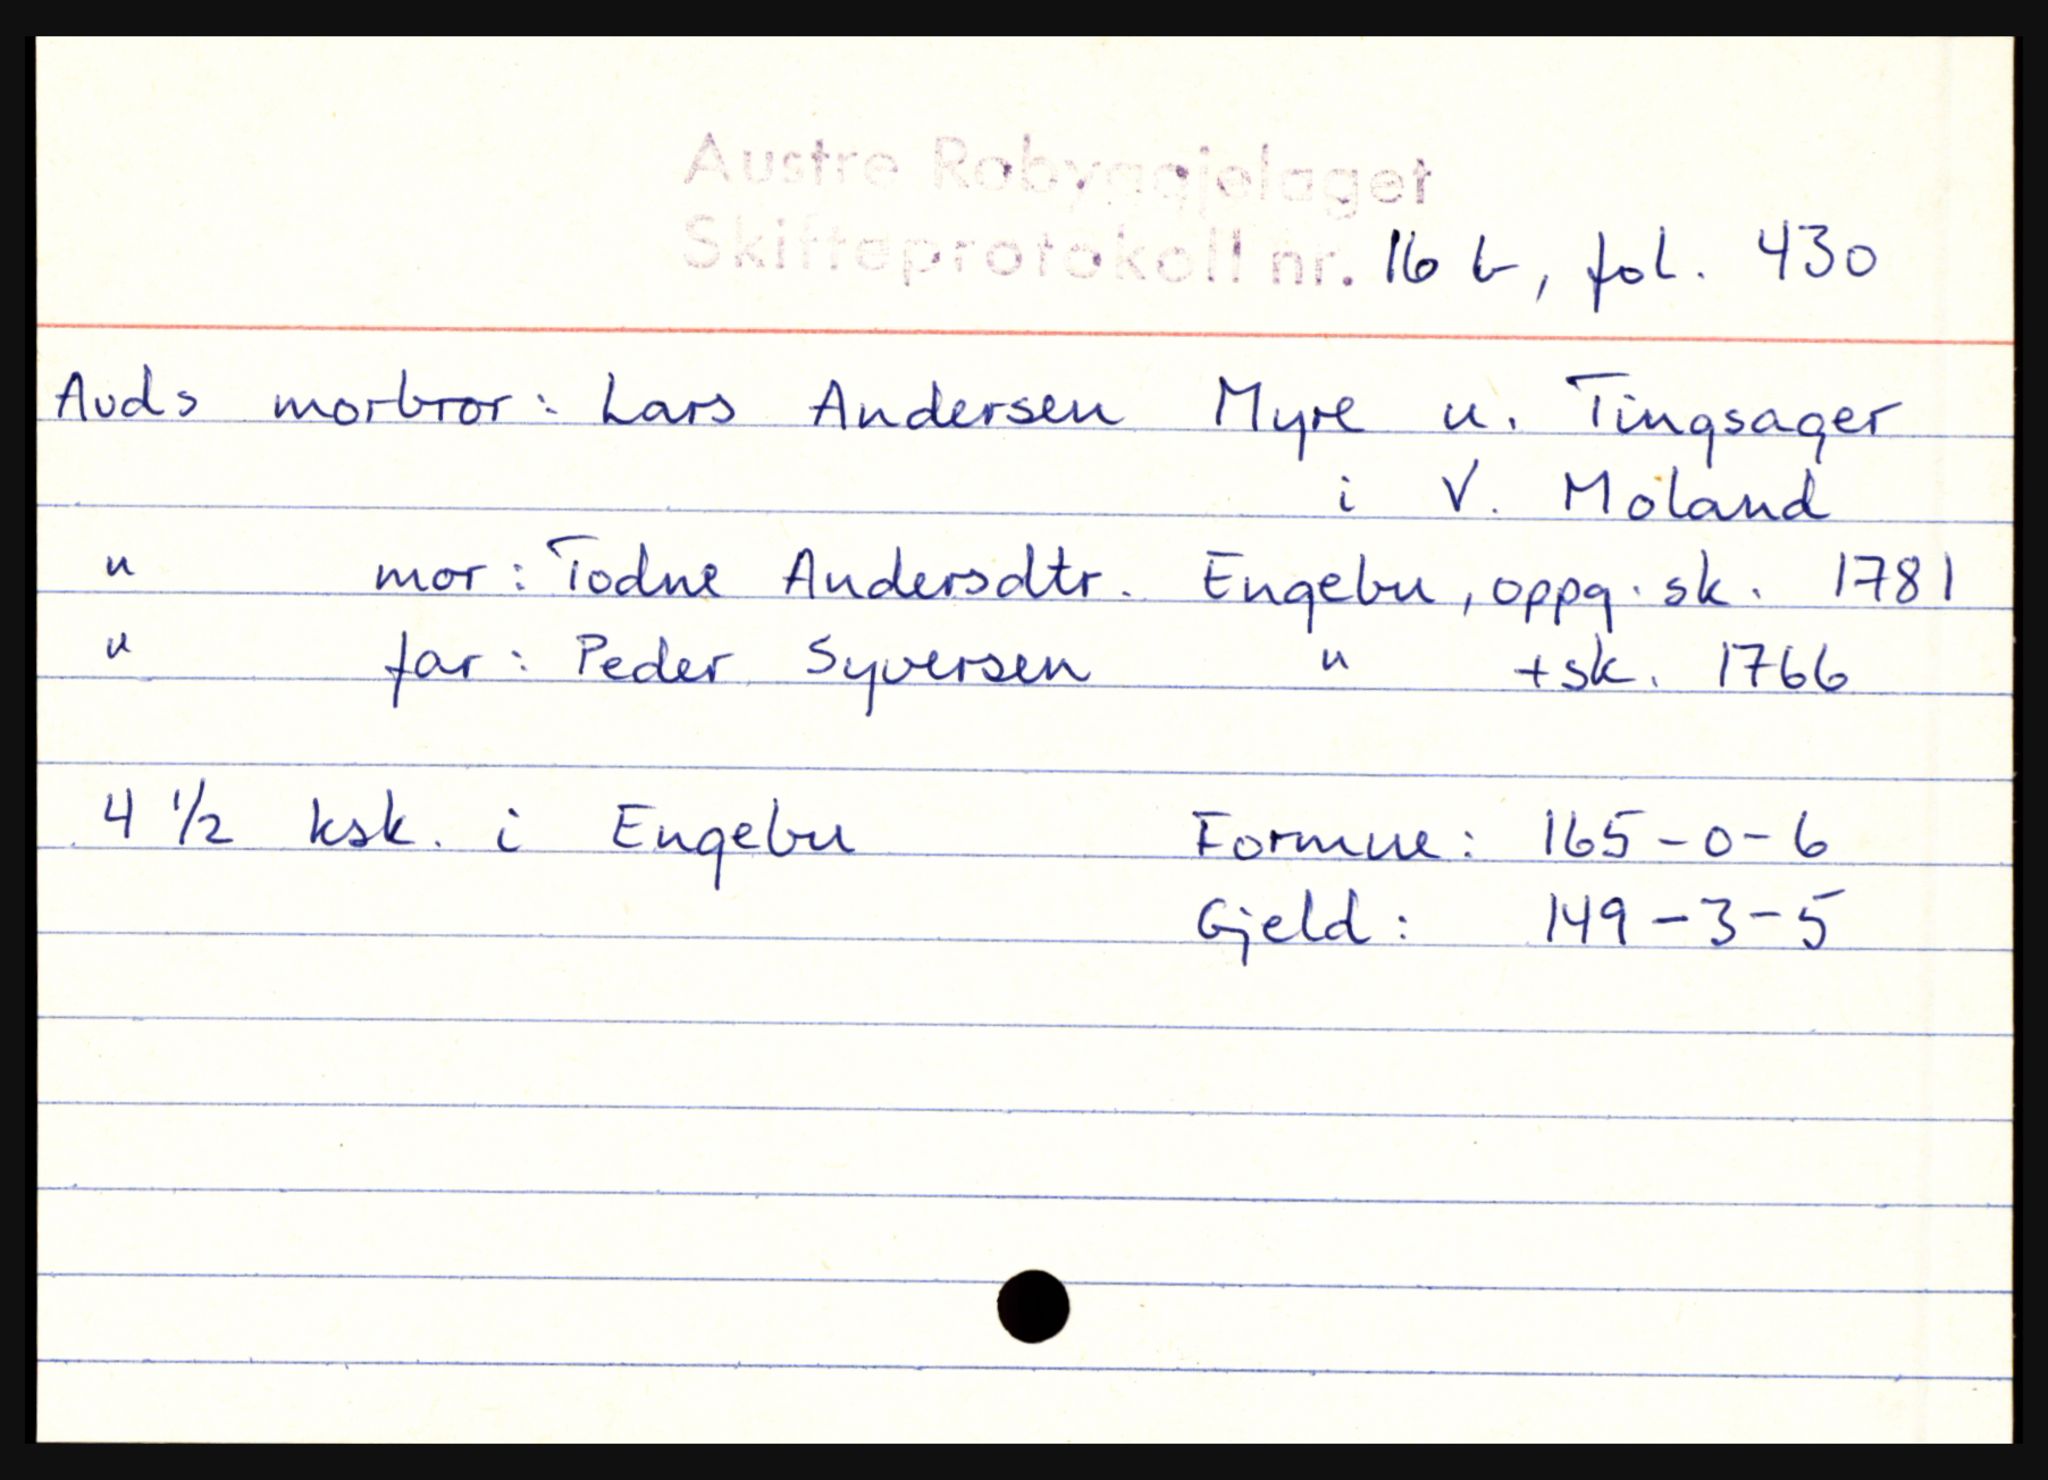 Austre Robyggjelaget
Skifteprotokoll nr. 16 b, fol. 430
Auds morbror: Lars Andersen Myre u. Tingsager
i V. Moland
" mor: Todne Andersdtr. Engebu, oppg. sk. 1781
" far: Peder Syversen " + sk. 1766
4 1/2 ksk. i Engebu Formue: 165-0-6
Gjeld: 149-3-5